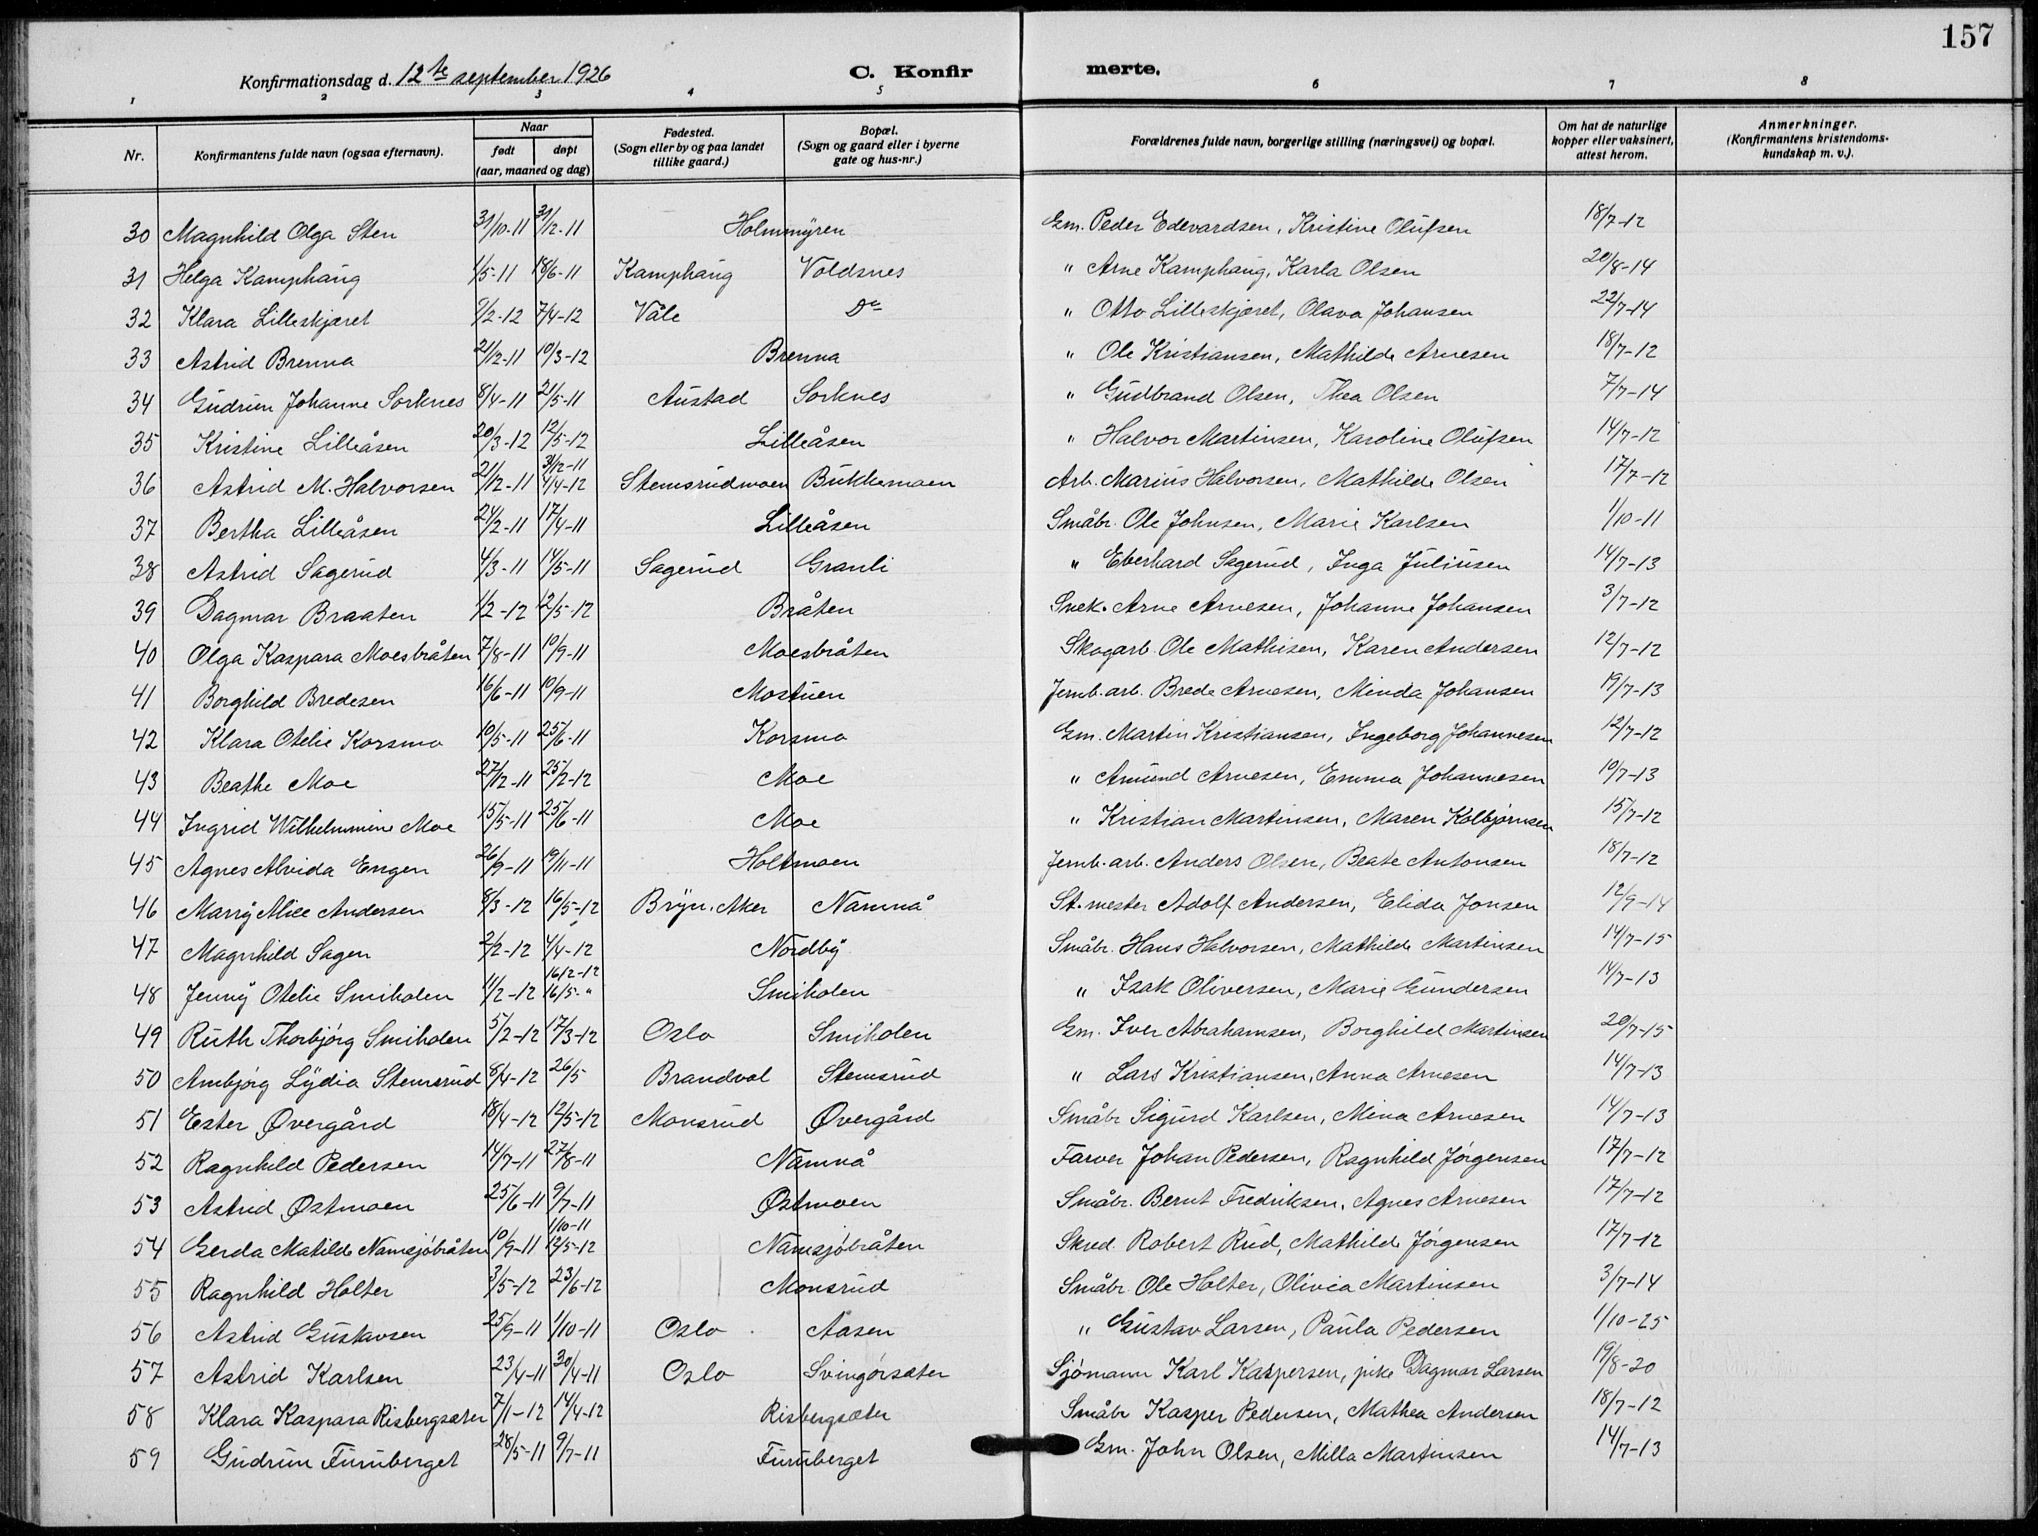 157
Konfirmationsdag d. 12te september 1926 C. Konfirmerte.
1 2 3 4 5 6 7 8
Nr. Konfirmantens fulde navn (ogsaa efternavn). Naar født døpt (aar, maaned og dag) Fødested. (Sogn eller by og paa landet tillike gaard.) Bopæl. (Sogn og gaard eller i byerne gate og hus-nr.) Forældrenes fulde navn, borgerlige stilling (næringsvei) og bopæl. Om hat de naturlige kopper eller vaksinert, attest herom. Anmerkninger. (Konfirmantens kristendoms-kundskap m. v.).
30 Magnhild Olga Sten 31/10-11 31/12-11 Holmmyren Gm. Peder Edevardsen, Kristine Olufsen 18/7-12
31 Helga Kamphaug 1/5-11 18/6-11 Kamphaug Voldsnes " Arne Kamphaug, Karla Olsen 20/8-14
32 Klara Lilleskjæret 9/2-12 7/4-12 Våle Do " Otto Lilleskjæret, Olava Johansen 22/7-14
33 Astrid Brenna 21/12-11 10/3-12 Brenna " Ole Kristiansen, Mathilde Arnesen 18/7-12
34 Gudrun Johanne Sorknes 8/4-11 21/5-11 Austad Sorknes " Gudbrand Olsen, Thea Olsen 7/7-14
35 Kristine Lilleåsen 20/3-12 12/5-12 Lilleåsen " Halvor Martinsen, Karoline Olufsen 14/7-12
36 Astrid M. Halvorsen 21/12-11 31/12-11 4/4-12 Stemsrudmoen Bukkemoen Arb. Marius Halvorsen, Mathilde Olsen 17/7-12
37 Bertha Lilleåsen 24/2-11 17/4-11 Lilleåsen Småbr. Ole Johnsen, Marie Karlsen 1/10-11
38 Astrid Sagerud 4/3-11 14/5-11 Sagerud Granli " Eberhard Sagerud, Inga Juliusen 14/7-13
39 Dagmar Braaten 1/2-12 12/5-12 Bråten Snek. Arne Arnesen, Johanne Johansen 3/7-12
40 Olga Kaspara Moesbråten 7/8-11 10/9-11 Moesbråten Skogarb. Ole Mathisen, Karen Andersen 12/7-12
41 Borghild Bredesen 16/6-11 10/9-11 Mostuen Jernb. arb. Brede Arnesen, Minda Johansen 19/7-13
42 Klara Otelie Korsmo 10/5-11 25/6-11 Korsmo Gm. Martin Kristiansen, Ingeborg Johannesen 12/7-12
43 Beathe Moe 27/12-11 25/2-12 Moe " Amund Arnesen, Emma Johannesen 10/7-13
44 Ingrid Wilhelmine Moe 15/5-11 25/6-11 Moe " Kristian Martinsen, Maren Kolbjørnsen 15/7-12
45 Agnes Alvida Engen 26/9-11 19/11-11 Holtmoen Jernb. arb. Anders Olsen, Beate Antonsen 18/7-12
46 Marry Alice Andersen 8/3-12 16/5-12 Bryn. Aker Namnå St. mester Adolf Andersen, Elida Jonsen 12/9-14
47 Magnhild Sagen 2/2-12 4/4-12 Nordby Småbr. Hans Halvorsen, Mathilde Martinsen 14/7-15
48 Jenny Otelie Smiholen 11/2-12 16/2-12 16/5-" Smiholen " Isak Oliversen, Marie Gundersen 14/7-13
49 Ruth Thorbjørg Smiholen 5/2-12 17/3-12 Oslo Smiholen Gm. Iver Abrahamsen, Borghild Martinsen 20/7-15
50 Ambjørg Lydia Stemsrud 8/4-12 26/5 Brandval Stemsrud " Lars Kristiansen, Anna Arnesen 14/7-13
51 Ester Øvergård 18/4-12 12/5-12 Monsrud Øvergård Småbr Sigurd Karlsen, Mina Arnesen 14/7-13
52 Ragnhild Pedersen 14/7-11 27/8-11 Namnå Farver Johan Pedersen, Ragnhild Jørgensen 17/7-12
53 Astrid Østmoen 25/6-11 9/7-11 Østmoen Småbr. Bernt Fredriksen, Agnes Arnesen 17/7-12
54 Gerda Matilde Namsjøbråten 10/9-11 1/10-11 12/5-12 Namsjøbråten Skred. Robert Rud, Mathilde Jørgensen 17/7-12
55 Ragnhild Holter 3/5-12 23/6-12 Monsrud Småbr Ole Holter, Olivia Martinsen 3/7-14
56 Astrid Gustavsen 25/9-11 1/10-11 Oslo Aasen " Gustav Larsen, Paula Pedersen 1/10-25
57 Astrid Karlsen 23/4-11 30/4-11 Oslo Svingørsæter Sjømann Karl Kaspersen, pike Dagmar Larsen 19/8-20
58 Klara Kaspara Risbergsæter 7/1-12 14/4-12 Risbergsæter Småbr Kasper Pedersen, Mathea Andersen 18/7-12
59 Gudrun Furuberget 28/5-11 9/7-11 Furuberget Gm. John Olsen, Milla Martinsen 14/7-13